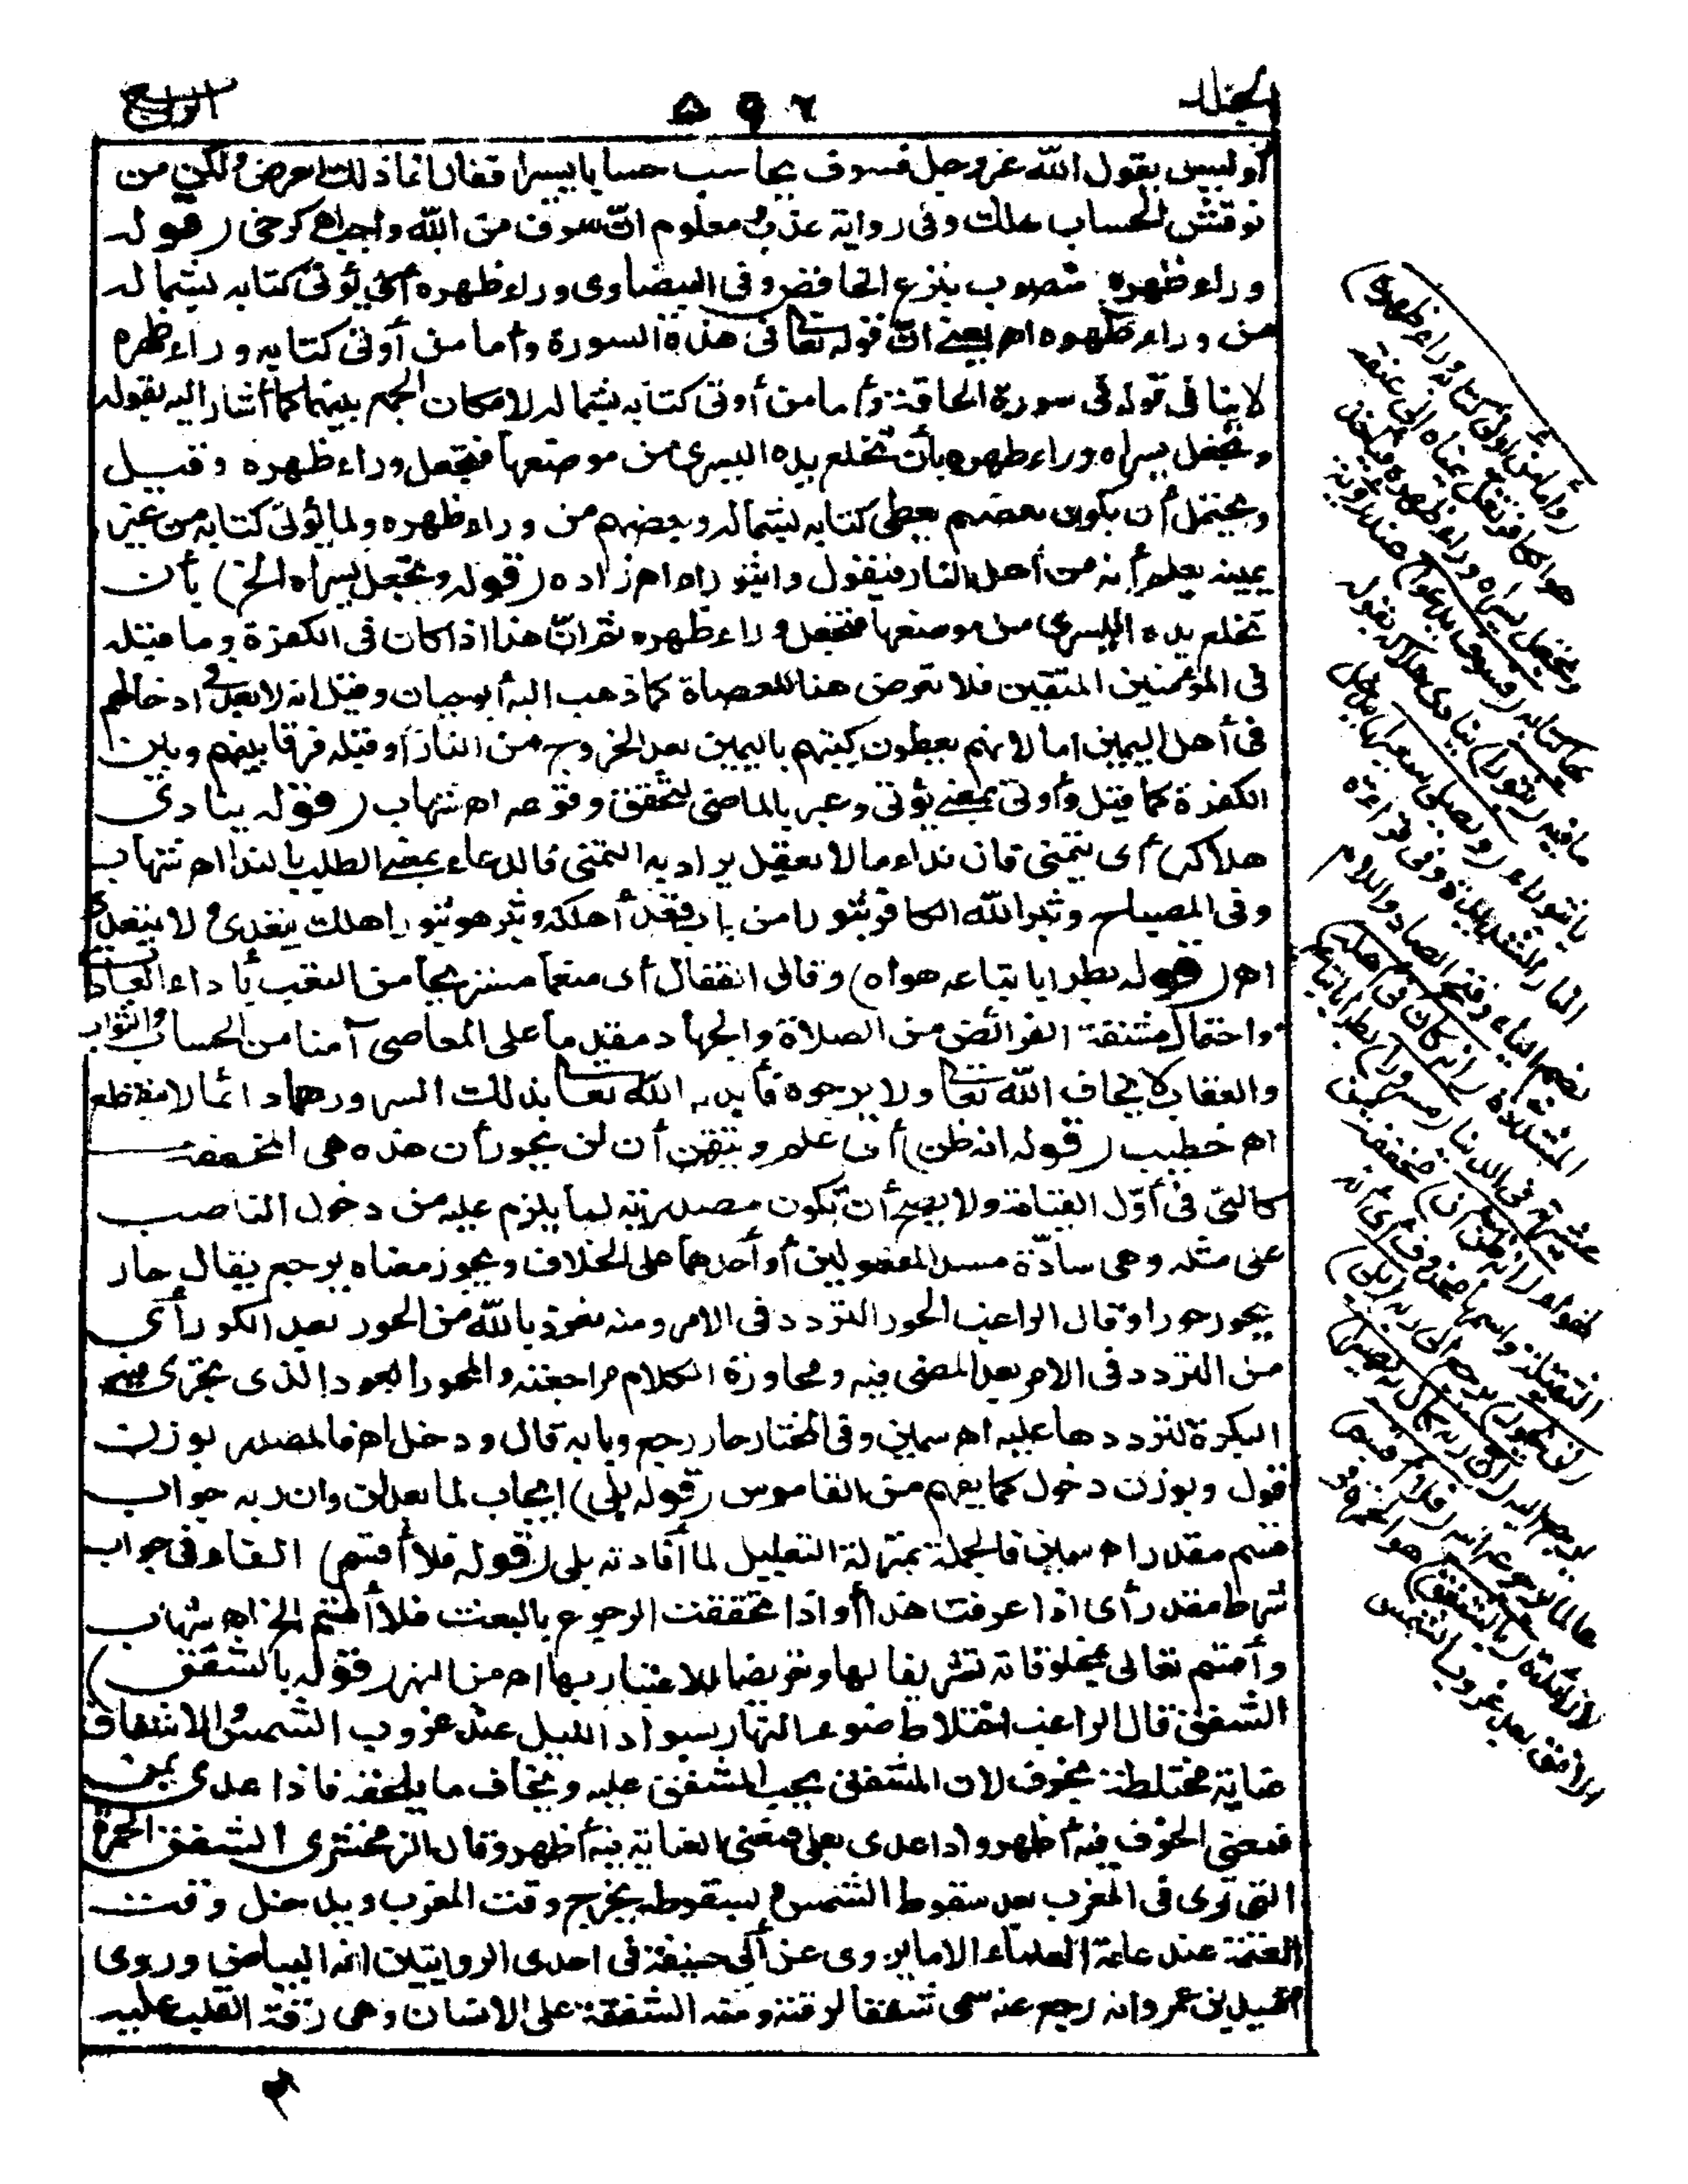 الجلد
٥٩٦
الرابع
أوليس يقول الله عز وجل فسوف يحاسب حسابا يسيرا فقال انما ذلك العرض ولكن من
نوقش الحساب هلك وفى رواية عذب ومعلوم ان سوف من الله واجب اهـ كرخى (قوله
وراء ظهره) منصوب بنزع الخافض وفى البيضاوى وراء ظهره أى يؤتى كتابه بشماله
من وراء ظهره اهـ يعنى ان قوله تعا فى هذه السورة وأما من أوتى كتابه وراء ظهره
لاينافى قوله فى سورة الحاقة وأما من أوتى كتابه بشماله لامكان الجمع بينهما كما أشار اليه بقوله
وتجعل يسراه وراء ظهره بأن تخلع يده اليسرى من موضعها فتجعل وراء ظهره وقيل
ويحتمل أن يكون بعضهم يعطى كتابه بشماله وبعضهم من وراء ظهره ولما يؤتى كتابه من غير
يمينه يعلم أنه من أهل النار فيقول واثبوراه اهـ زاده (قوله وتجعل يسراه الخ) بأن
تخلع يده اليسرى من موضعها فتجعل وراء ظهره ثم ان هذا اذا كان فى الكفرة وما قبله
فى المؤمنين المتقين فلا تعرض هنا للعصاة كما ذهب اليه أبو حيان وقيل انه لا بعد فى ادخالهم
فى أهل اليمين اما لانهم يعطون كتبهم باليمين بعد الخروج من النار أو قبله فرقا بينهم وبين
الكفرة كما قيل وأوتى بمعنى يؤتى وعبر بالماضى لتحقق وقوعه اهـ شهاب (قوله ينادى
هلاكه) أى يتمنى فان نداء مالا يعقل يراد به التمنى فالدعاء بمعنى الطلب بالندا اهـ شهاب
وفى المصباح وثبر الله الكافر ثبورا من باب قعد أهلكه وثبر هو ثبورا هلك يتعدى ولا يتعدى
اهـ (قوله بطرا باتباعه هواه) وقال القفال أى منعما مستريحا من التعب بأداء العبادات
واحتمال مشقة الفرائض من الصلاة والجهاد مقدما على المعاصى آمنا من الحساب والثواب
والعقاب لا يخاف الله تعا ولا يرجوه فأبدله الله تعا بذلك السرور هما دائما لا ينقطع
اهـ خطيب (قوله انه ظن) أى علم وتيقن أن لن يحور أن هذه هى المخففة
كالتى فى أول القيامة ولا يصح أن تكون مصدرية لما يلزم عليه من دخول الناصب
على مثله وهى سادّة مسد المفعولين أو أحدهما على الخلاف ويحور معناه يرجع يقال حار
يحور حورا وقال الراغب الحور التردد فى الامر ومنه نعوذ بالله من الحور بعد الكور أى
من التردد فى الامر بعد المضى فيه ومحاورة الكلام مراجعته والمحور العود الذى تجرى فيه
البكرة لترددها عليه اهـ سمين وفى المختار حار رجع وبابه قال ودخل اهـ فالمصدر بوزن
قول وبوزن دخول كما يفهم من القاموس (قوله بلى) ايجاب لما بعد لن وان ربه جواب
قسم مقدر اهـ سمين فالجملة بمنزلة التعليل لما أفادته بلى (قوله فلا أقسم) الفاء فى جواب
شرط مقدر أى اذا عرفت هذا أو اذا تحققت الرجوع بالبعث فلا أقسم الخ اهـ شهاب
وأقسم تعالى بمخلوقاته تشريفا لها وتعريضا للاعتبار بها اهـ من النهر (قوله بالشفق)
الشفق قال الراغب اختلاط ضوء النهار بسواد الليل عند غروب الشمس والاشفاق
عناية مختلطة بخوف لان المشفق يحب المشفق عليه ويخاف ما يلحقه فاذا عدى بمن
فمعنى الخوف فيه أظهر واذا عدى بعلى فمعنى العناية فيه أظهر وقال الزمخشرى الشفق الحمرة
التى ترى فى المغرب بعد سقوط الشمس وبسقوطه يخرج وقت المغرب ويدخل وقت
العتمة عند عامة العلماء الا ما يروى عن أبى حنيفة فى احدى الروايتين انه البياض وروى
أسيد بن عمرو انه رجع عنه سمى شفقا لرقته ومنه الشفقة على الانسان وهى رقة القلب عليه
(وأما من أوتى كتابه وراء ظهره)
هو الكافر تغل يمناه الى عنقه
وتجعل يسراه وراء ظهره فيأخذ
بها كتابه (فسوف يدعوا) عند رؤيته
ما فيه (ثبورا) ينادى هلاكه بقوله
يا ثبوراه (ويصلى سعيرا) يدخل
النار الشديدة وفى قراءة
بضم الياء وفتح الصاد واللام
المشددة (انه كان فى أهله)
عشيرته فى الدنيا (مسرورا) بطرا باتباعه
لهواه (انه ظن أن) مخففة من
الثقيلة واسمها محذوف أى انه
(لن يحور) يرجع الى ربه (بلى)
يرجع اليه (ان ربه كان به بصيرا)
عالما برجوعه اليه (فلا أقسم)
لا زائدة (بالشفق) هو الحمرة فى
الافق بعد غروب الشمس